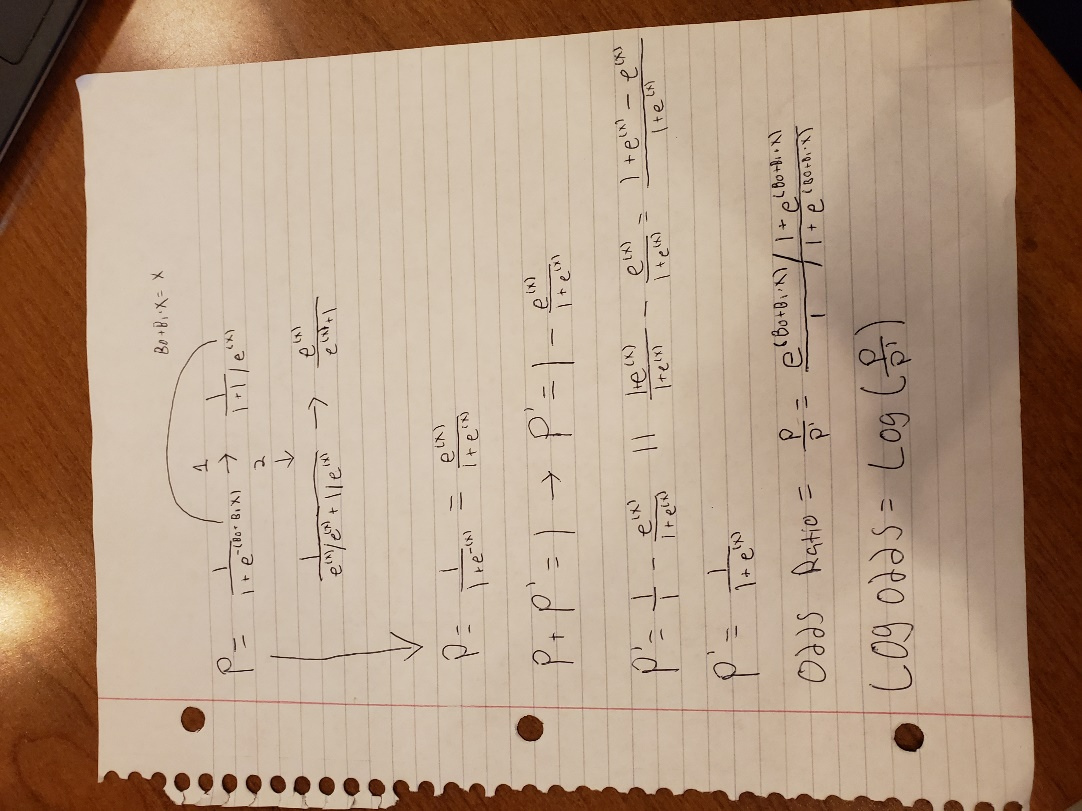 B0+B1·X = X
P = 1/(1+e^-(B0+B1X)) 1 → 1/(1+1/e^(x))
2 ↓
1/(e^(x)/e^(x)+1/e^(x)) → e^(x)/(e^(x)+1)
P = 1/(1+e^-(x)) = e^(x)/(1+e^(x))
P + P' = 1 → P' = 1 - e^(x)/(1+e^(x))
P' = 1/1 - e^(x)/(1+e^(x)) || (1+e^(x))/(1+e^(x)) - e^(x)/(1+e^(x)) = (1+e^(x) - e^(x))/(1+e^(x))
P' = 1/(1+e^(x))
Odds Ratio = P/P' = (e^(B0+B1·X)/1+e^(B0+B1·X))/(1/1+e^(B0+B1·X))
Log Odds = Log (P/P')